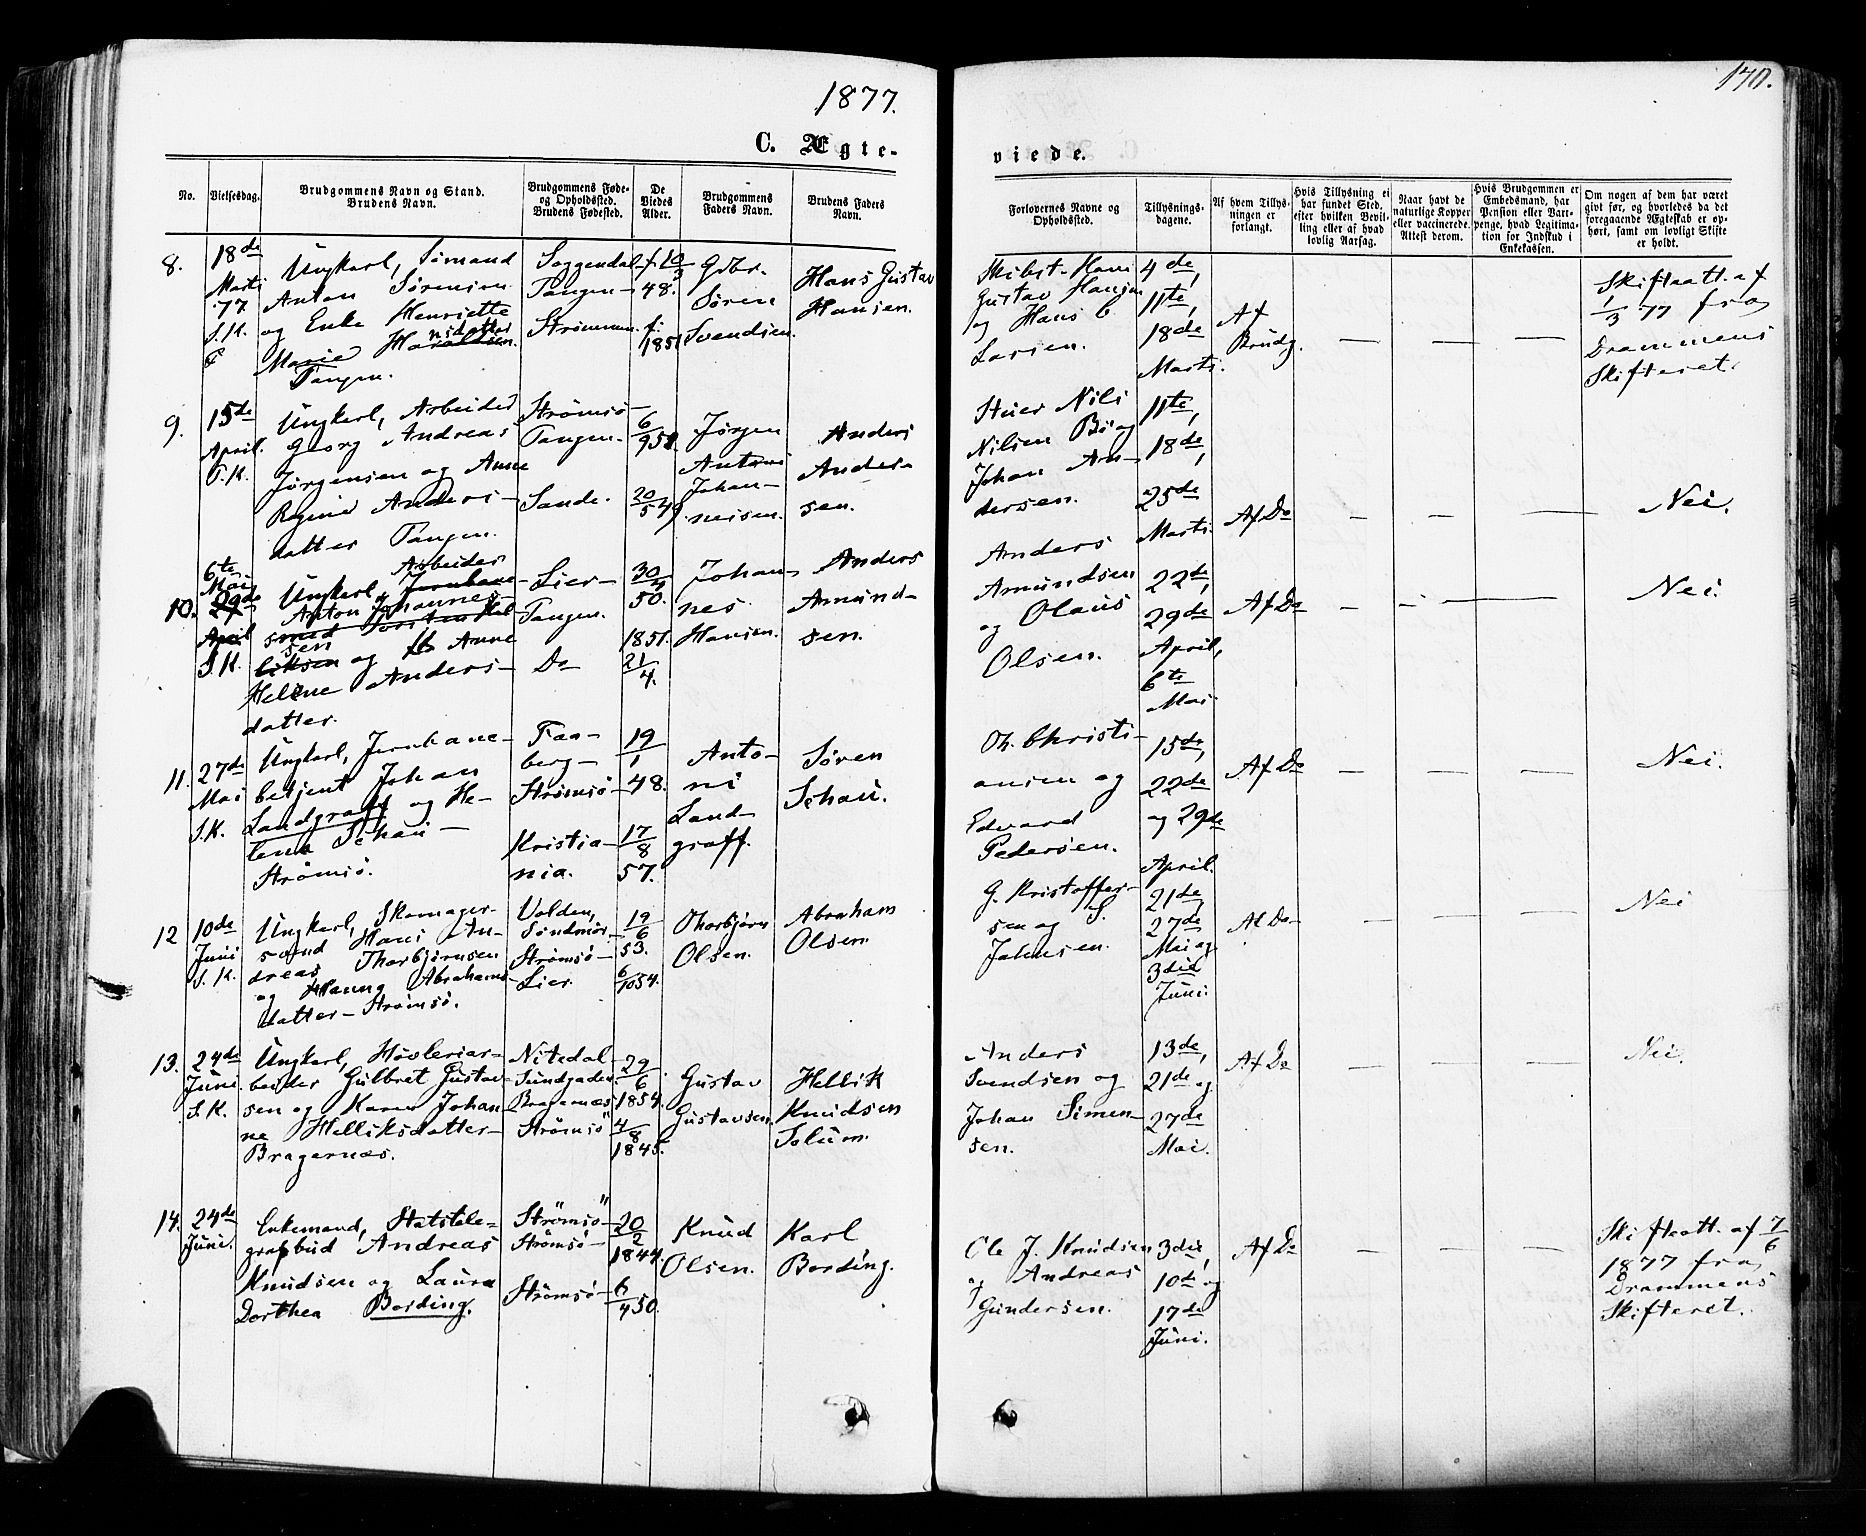 1877.
170.
C. Ægte-
viede.
No.
Vielsesdag.
Brudgommens Navn og Stand.
Brudens Navn.
Brudgommens Føde-
og Opholdssted.
Brudens Fødested.
De
Viedes
Alder.
Brudgommens
Faders Navn.
Brudens Faders
Navn.
Forlovernes Navne og
Opholdssted.
Tillysnings-
dagene.
Af hvem Tillys-
ningen er
forlangt.
Hvis Tillysning ei
har fundet Sted,
efter hvilken Bevil-
ling eller af hvad
lovlig Aarsag.
Naar havt de
naturlige Kopper
eller vaccinerede.
Attest derom.
Hvis Brudgommen er
Embedsmand, har
Pension eller Vart-
penge, hvad Legitima-
tion for Indskud i
Enkekassen.
Om nogen af dem har været
givt før, og hvorledes da det
foregaaende Ægteskab er op-
hørt, samt om lovligt Skifte
er holdt.
8.
18de
Marts
77
S.K.
Ungkarl, Simand
Anton Sørensen
og Enke Henriette
Marie Hansdatter
Tangen.
Soggendal-
Tangen-
Strømmen.
f. 10/3
48.
f:
1851
Gbr.
Søren
Svendsen.
Hans Gustav
Hansen.
Skibst. Hans
Gustav Hansen
og Hans C.
Larsen.
4de,
11te,
18de
Marts.
Af
Brudg.
— — —
Skifteatt. af
1/3 77 fra
Drammens
Skifteret.
9.
15de
April.
T.K.
Ungkarl, Arbeider
Georg Andreas
Jørgensen og Anne
Regine Anders-
datter Tangen.
Strømsø-
Tangen-
Sande.
6/9 51
20/5 49
Jørgen
Antoni
Johan-
nesen.
Anders
Ander-
sen.
Stuer Nils
Nilsen Bø og
Johan An-
dersen.
11te,
18de,
25de
Marts.
Af Do
— — —
Nei.
10.
6te
Mai
29de
April
S.K.
Arbeider
Ungkarl, Jernbane-
Anton Johannes-
smed Torsten Hel
sen
liksen og Anne
Heline Anders-
datter.
Lier-
Tangen.
Do
30/4
50.
1851.
21/4.
Johan-
nes
Hansen.
Anders
Amund-
sen.
Anders
Amundsen
og Olaus
Olsen.
22de,
29de
April,
6te
Mai
Af Do
— — —
Nei.
11.
27de
Mai
S.K.
Ungkarl, Jernbane-
betjent Johan
Landgraff og He-
lene Schau-
Strømsø.
Faa-
berg-
Strømsø-
Kristia-
nia.
19/1
48.
17/8
57.
Anto-
ni
Land-
graff.
Søren
Schau.
Th. Christi-
ansen og
Edvard
Pedersen.
15de,
22de
og 29de
April.
Af Do
— — —
Nei.
12
10de
Juni
S.K.
Ungkarl, Skomager-
svend Hans An-
dreas Thorbjørnsen
og Hanna Abrahams-
datter - Strømsø.
Volden,
Søndmør.
Strømsø-
Lier.
19/6
53.
6/10 54.
Thorbjørn
Olsen.
Abraham
Olsen.
G. Kristoffer-
sen og S.
Johnsen.
21de,
27de
Mai og
3die
Juni.
Af Do
— — —
Nei
13.
24de
Juni.
S.K.
Ungkarl, Høvleriar-
beider Gulbret Gustav-
sen og Karen Johan
ne Helliksdatter-
Bragernæs.
Nitedal-
Sundgaden.
Bragernæs
Strømsø
29/6
1854.
4/8
1845.
Gustav
Gustavsen.
Hellik
Knudsen
Solum.
Anders
Svendsen og
Johan Simen-
sen.
13de,
21de og
27de
Mai.
Af Do
— — —
Nei.
14.
24de
Juni.
Enkemand, Statstele-
grafbud Andreas
Knudsen og Laura
Dorthea Bording.
Strømsø-
Strømsø-
Strømsø-
20/2
1844.
6/4 50.
Knud
Olsen.
Karl
Bording.
Ole J. Knudsen
og Andreas
Gundersen.
3die,
10de og
17de
Juni.
Af Do
— — —
Skifteatt. af 7/6
1877 fra
Drammens
Skifteret.